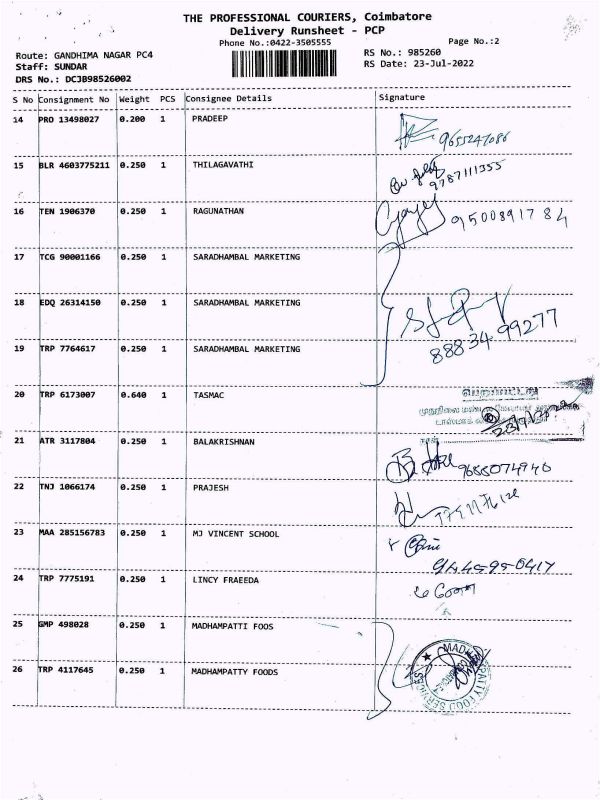 THE PROFESSIONAL COURIERS, Coimbatore
Delivery Runsheet - PCP
Phone No.:0422-3505555
Page No.:2
Route: GANDHIMA NAGAR PC4
Staff: SUNDAR
DRS No.: DCJB98526002
RS No.: 985260
RS Date: 23-Jul-2022
S No Consignment No Weight PCS Consignee Details Signature
14 PRO 13498027 0.200 1 PRADEEP
9655247086
15 BLR 4603775211 0.250 1 THILAGAVATHI
9787111355
16 TEN 1906370 0.250 1 RAGUNATHAN
9500891784
17 TCG 90001166 0.250 1 SARADHAMBAL MARKETING
18 EDQ 26314150 0.250 1 SARADHAMBAL MARKETING
88834 99277
19 TRP 7764617 0.250 1 SARADHAMBAL MARKETING
20 TRP 6173007 0.640 1 TASMAC
பெறப்பட்டது
21 ATR 3117804 0.250 1 BALAKRISHNAN
9655074940
22 TNJ 1066174 0.250 1 PRAJESH
23 MAA 285156783 0.250 1 MJ VINCENT SCHOOL
9445950417
24 TRP 7775191 0.250 1 LINCY FRAEEDA
25 GMP 498028 0.250 1 MADHAMPATTI FOOS
26 TRP 4117645 0.250 1 MADHAMPATTY FOODS